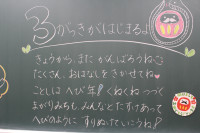 3がっきがはじまるよ
きょうから また がんばろうね
たくさん、おはなしをきかせてね
ことしは へび年！くねくね つづく
まがりみちも、みんなとたすけあって
へびのように するりぬけていこうね！